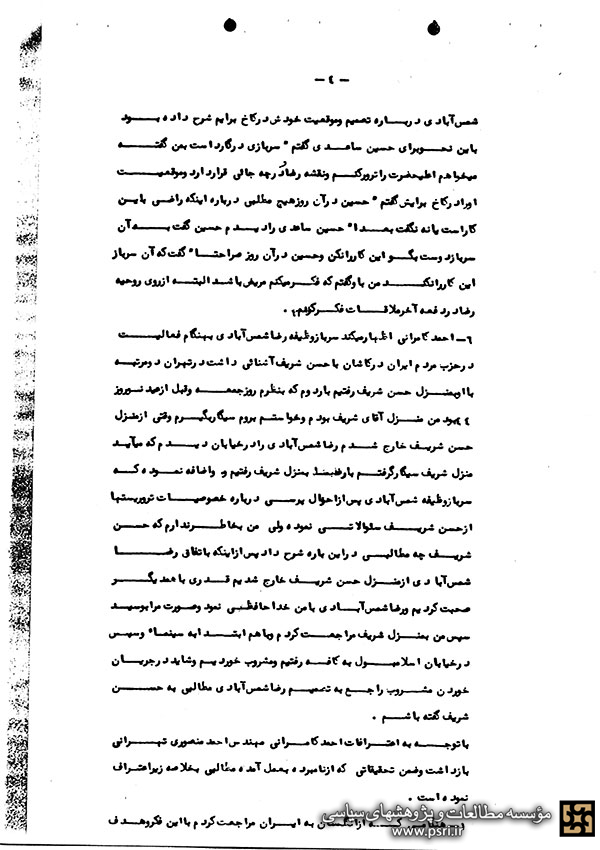 - ٤ -
شمس‌آبادی درباره تصمیم وموقعیت خودش درکاخ برایم شرح داده بود
باین نحوبرای حسین ساعدی گفتم " سربازی درگارداست بمن گفته
میخواهم اعلیحضرت راترورکنم ونقشه رضا درچه جائی قرارداردوموقعیت
اورادرکاخ برایش گفتم " حسین درآن روزهیچ مطلبی درباره اینکه راضی باین
کاراست یانه نگفت بعدا" حسین ساعدی رادیدم حسین گفت به آن
سربازدوست بگو این کاررانکن وحسین درآن روز صراحتا" گفت که آن سرباز
این کاررانکند من باوگفتم که فکرمیکنم مریض باشد البته ازروی روحیه
رضا دردفعه آخرملاقات فکرکردم .
٦- احمد کامرانی اظهارمیکند سربازوظیفه رضا شمس‌آبادی بهنگام فعالیت
درحزب مردم ایران درکاشان باحسن شریف آشنائی داشت درتهران دومرتبه
بااوبمنزل حسن شریف رفتیم باردوم که بنظرم روزجمعه وقبل ازعید نوروز
٤٤ بود من منزل آقای شریف بودم وخواستم بروم سیگاربگیرم وقتی ازمنزل
حسن شریف خارج شدم رضا شمس‌آبادی رادرخیابان دیدم که میآید
منزل شریف سیگارگرفتم بارضا بمنزل شریف رفتیم و واضافه نموده که
سربازوظیفه شمس‌آبادی پس ازاحوال پرسی درباره خصوصیات تروریستها
ازحسن شریف سئوالاتی نموده ولی من بخاطرندارم که حسن
شریف چه مطالبی دراین باره شرح داد پس ازاینکه باتفاق رضا
شمس‌آبادی ازمنزل حسن شریف خارج شدیم قدری باهمدیگر
صحبت کردیم ورضا شمس‌آبادی بامن خداحافظی نمود وصورت مرابوسید
سپس من بمنزل شریف مراجعت کردم وباهم ابتدا به سینما" وسپس
درخیابان اسلامبول به کافه رفتیم ومشروب خوردیم وشاید درجریان
خوردن مشروب راجع به تصمیم رضا شمس‌آبادی مطالبی به حسن
شریف گفته باشم .
باتوجه به اعترافات احمد کامرانی مهندس احمد منصوری تهرانی
بازداشت وضمن تحقیقاتی که ازنامبرده بعمل آمده مطالبی بخلاصه زیراعتراف
نموده است .
ازانگلستان به ایران مراجعت کردم بااین فکروهدف
مؤسسه مطالعات و پژوهشهای سیاسی
www.psri.ir